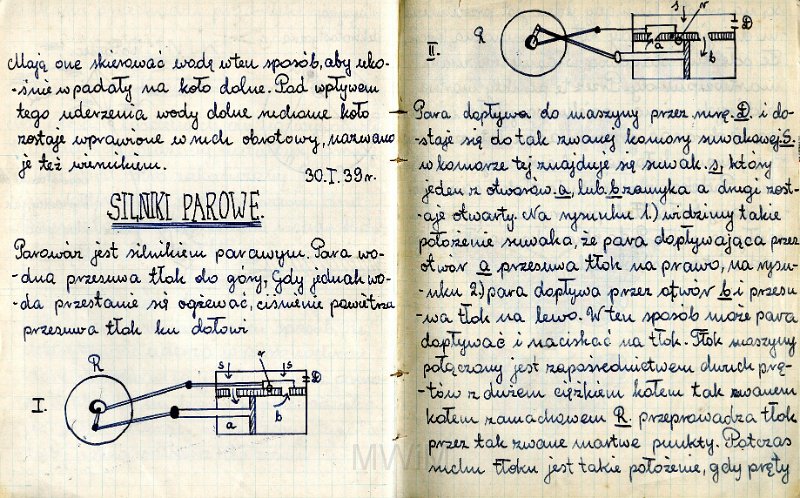 Mają one skierować wodę w ten sposób, aby uko-
-śnie wpadały na koło dolne. Pod wpływem
tego uderzenia wody dolne ruchome koło
zostaje wprawione w ruch obrotowy, nazwano
je też wirnikiem.
30.I.39 r.
SILNIKI PAROWE.
Parowóz jest silnikiem parawym. Para wo-
-dna przesuwa tłok do góry. Gdy jednak wo-
-da przestanie się ogżewać, ciśnienie powietrza
przesuwa tłok ku dołowi
R
s
r
s
D
I.
a
b
II.
R
s
r
D
a
b
Para dopływa do maszyny przez rurę D. i do-
-staje się do tak zwanej komory suwakowej S.
w komorze tej znajduje się suwak s, który
jeden z otworów a, lub b zamyka a drugi zost-
-aje otwarty. Na rysunku 1) widzimy takie
położenie suwaka, że para dopływająca przez
otwór a przesuwa tłok na prawo, na rysu-
-nku 2) para dopływa przez otwór b i przesu-
-wa tłok na lewo. W ten sposób może para
dopływać i naciskać na tłok. Tłok maszyny
połączony jest zapośrednictwem dwuch prę-
-tów z dużem ciężkiem kołem tak zwanem
kołem zamachowem R. przeprowadza tłok
przez tak zwane martwe punkty. Potczas
ruchu tłoku jest takie położenie, gdy pręty
MWiM